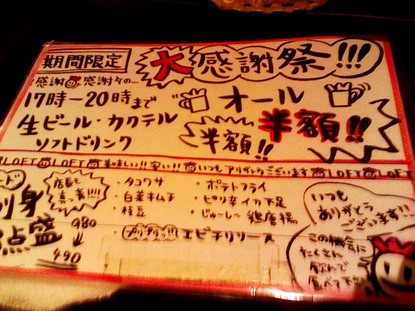 期間限定
大感謝祭!!!
感謝感謝々の…
17時〜20時まで
生ビール・カクテル
ソフトドリンク
オール
半額!!
半額!!
LOFT LOFT 美味しい!! 安い!! いつもアリガとなございます LOFT LOFT
身
点盛
980
490
・タコワサ
・白菜キムチ
・枝豆
・ポテトフライ
・ピリ辛イカ下足
・じゅーしー鶏唐揚
・プリプリ!! エビチリソース
いつも
ありがとう
ございます!!
この機会に
たくさん
飲んで
食べて下さい